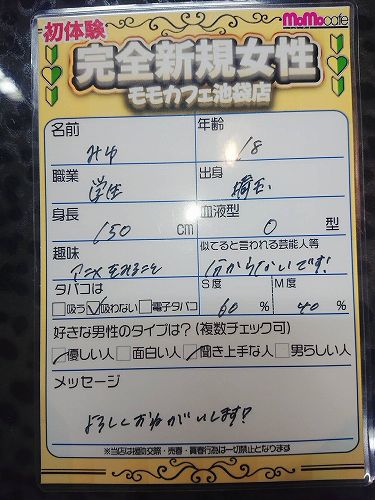 初体験
MoMo cafe
完全新規女性
モモカフェ池袋店
名前 年齢
みゆ 18
職業 出身
学生 埼玉
身長 血液型
150 cm O 型
趣味 似てると言われる芸能人等
アニメをみること 分からないです!
タバコは S度 M度
吸う 吸わない 電子タバコ 60 % 40 %
好きな男性のタイプは?(複数チェック可)
優しい人 面白い人 聞き上手な人 男らしい人
メッセージ
よろしくおねがいします!
※当店は援助交際・売春・買春行為は一切禁止となります